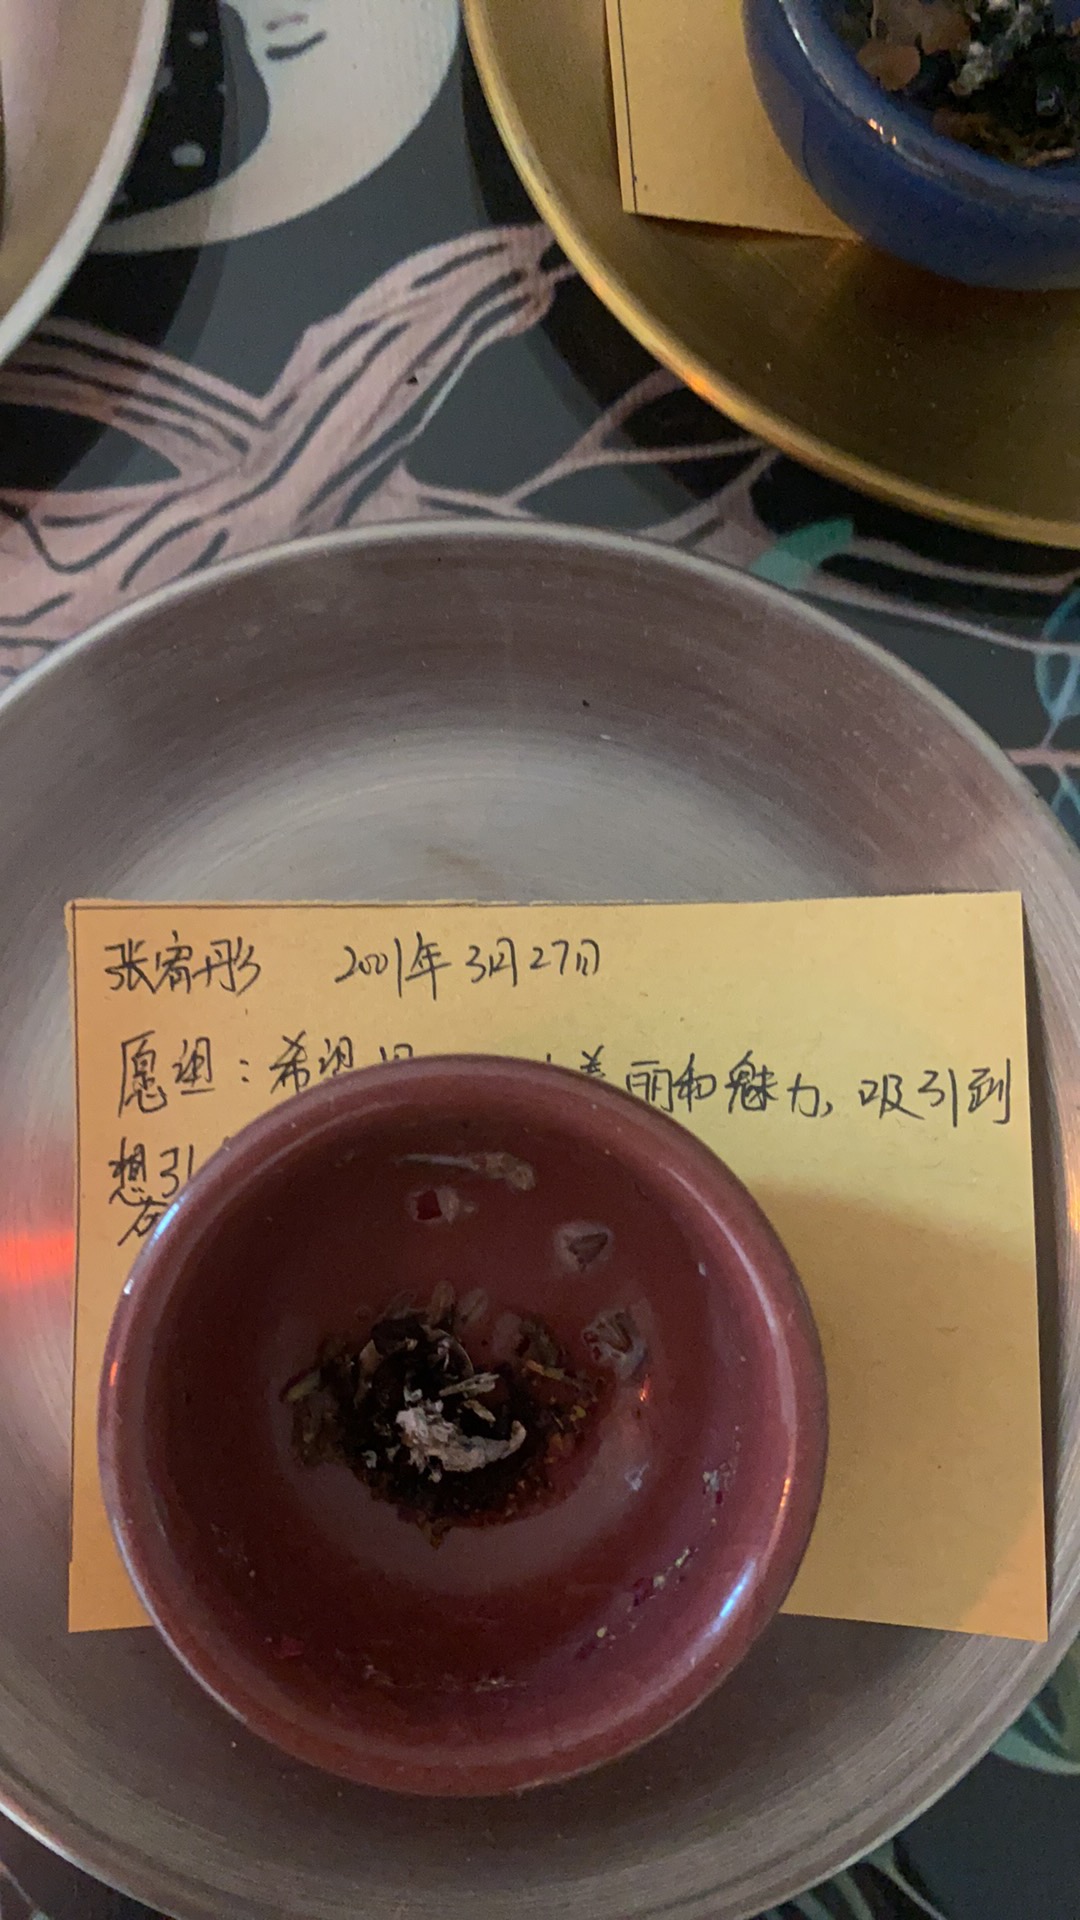 张宥彤 2001年3月27日
愿望：希望 美丽和魅力，吸引到
想引